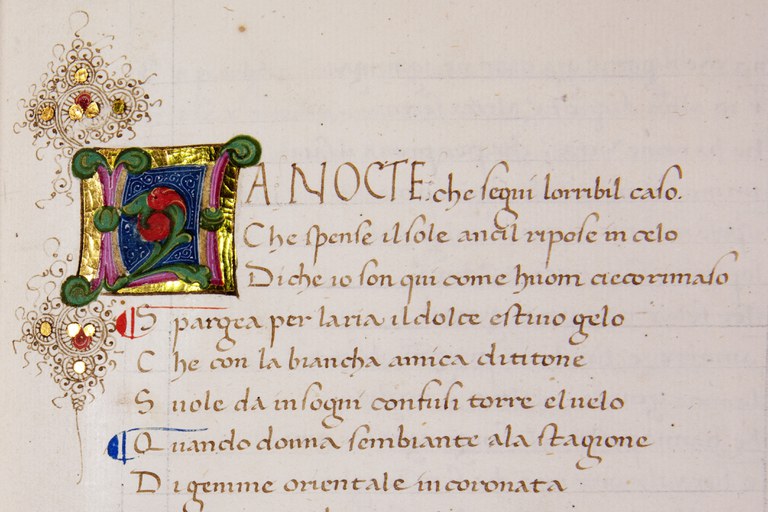 LA NOCTE che segui lorribil caso.
Che spense il sole ancil ripose in celo
Di che io son qui come huom cieco rimaso
Spargea per laria il dolce estiuo gelo
Che con la biancha amica di titone
Suole da insogni confusi torre el uelo
Quando donna sembiante a la stagione
Di gemme orientale incoronata